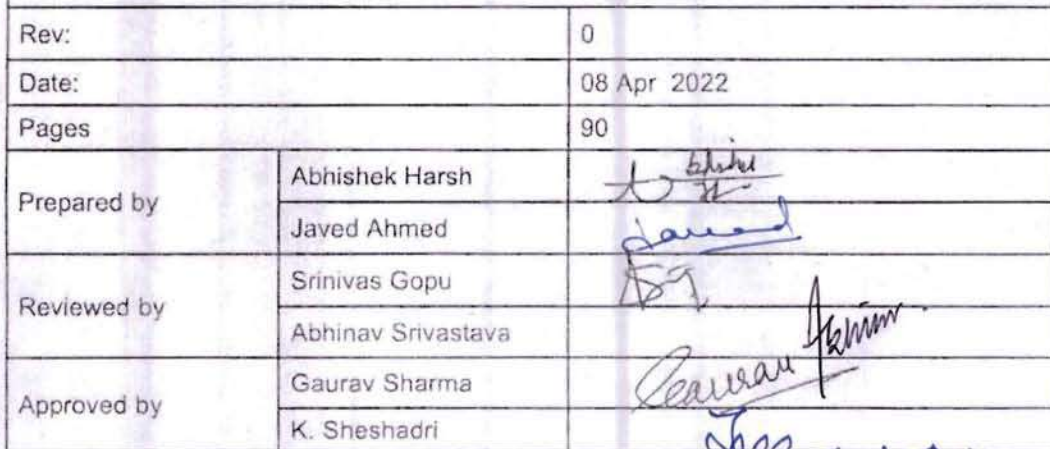 Rev: 0
Date: 08 Apr 2022
Pages 90
Prepared by
Abhishek Harsh
Javed Ahmed
Reviewed by
Srinivas Gopu
Abhinav Srivastava
Approved by
Gaurav Sharma
K. Sheshadri